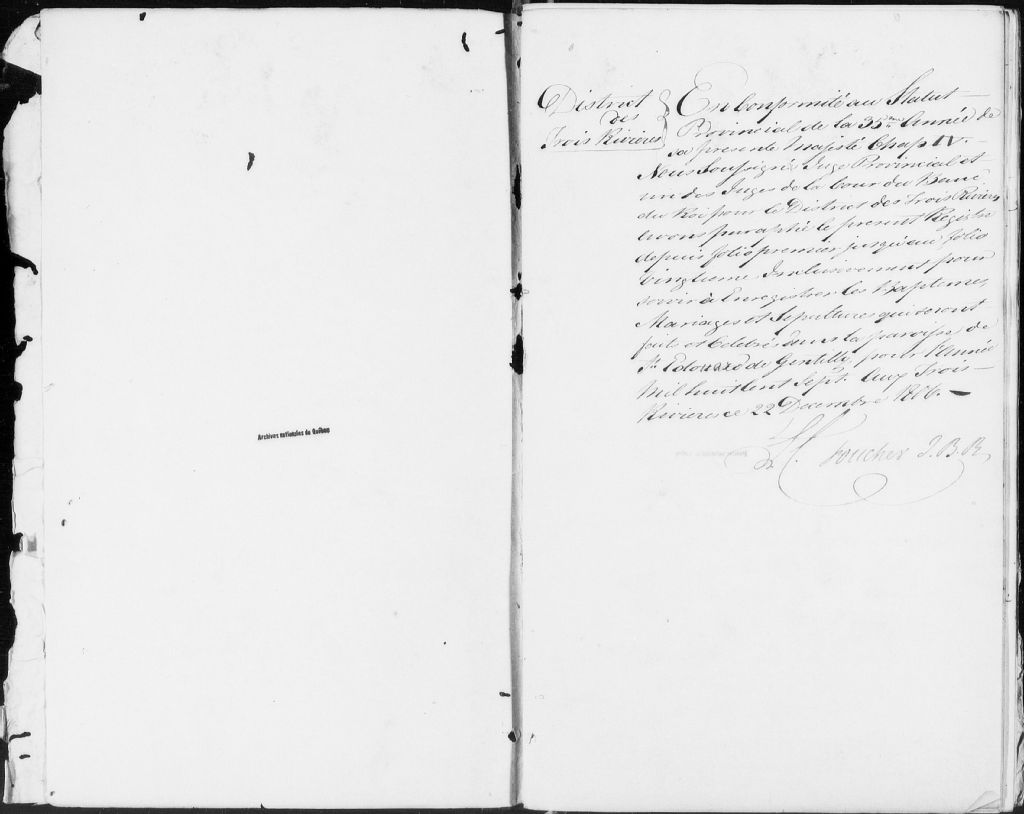 Archives nationales du Québec
District
des
Trois Rivieres
En Conformité au Statut
Provincial de la 35me Année de
sa presente Majesté Chap IV.
Nous Soussigné Juge Provincial et
un des Juges de la Cour du Banc
du Roi pour le District des Trois Rivieres
avons paraphé le present Régistre
depuis folio premier jusqu'au folio
vingtieme Inclusivement pour
servir à Enregistrer les Baptemes,
Mariages et Sepultures qui seront
faits et Celebrés dans la paroisse de
St. Edouard de Gentilly, pour l'Année
Mil huit Cent Sept. Aux Trois
Rivieres ce 22 Decembre 1806.
L. C. Foucher J.B.R.